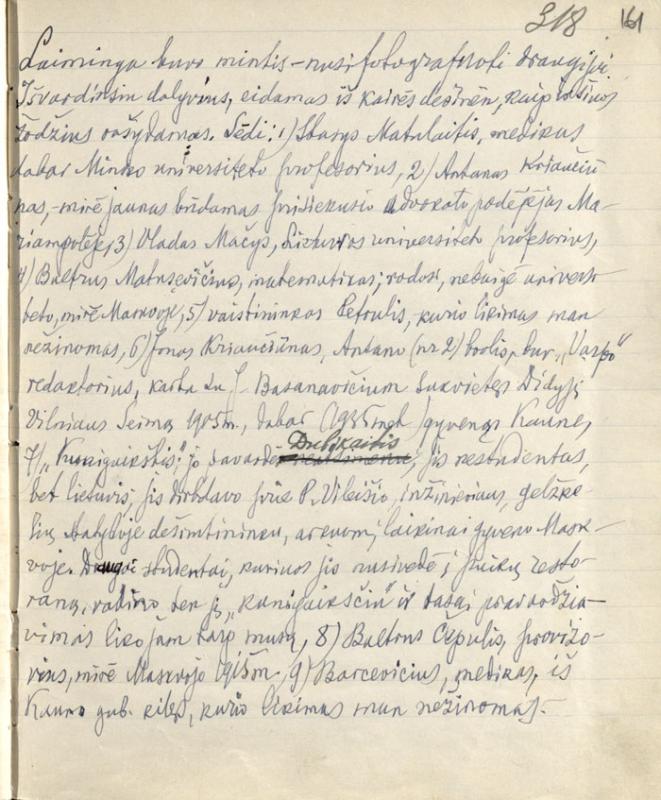 318 161
Laiminga buvo mintis – nusifotografuoti draugijai.
Išvardinsiu dalyvius, eidamas iš kairės dešinėn, kaip
žodžius rašydamas. Sėdi: 1) Stasys Matulaitis, medikas
dabar Minsko universiteto profesorius, 2) Antanas Kriaučiū
nas, – mirė jaunas būdamas prisiekusio advokato padėjėjas Ma-
riampolėje, 3) Vladas Mačys, Lietuvos universiteto profesorius,
4) Baltrus Matusevičius, matematikas; rodosi, nebaigė universi-
teto, mirė Maskvoje, 5) vaistininkas Petrulis, – kurio likimas man
nežinomas, 6) Jonas Kriaučiūnas, Antano (nr 2) brolis, buv. „Varpo"
redaktorius, kartu su J. Basanavičium sukvietęs Didįjį
Vilniaus Seimą 1905 m., dabar (1935 met.) gyvenąs Kaune,
7) „Kunigaikštis"; jo pavardė Dubikaitis, jis ne studentas,
bet lietuvis, jis dirbdavo prie P. Vileišio, inžinieriaus, gelžke-
lių statyboje dešimtininku, laikinai gyveno Mask-
voje. Draugai studentai, kuriuos jis nusivedė į puikų resto-
raną, vadino ten jį „kunigaikščiu" ir tasai pravardžia-
vimas liko jam tarp musų, 8) Baltrus Čepulis, provizo-
rius, mirė Maskvoje 1918 m. 9) Barcevičius, medikas, iš
Kauno gub. kilęs, kurio likimas man nežinomas. –